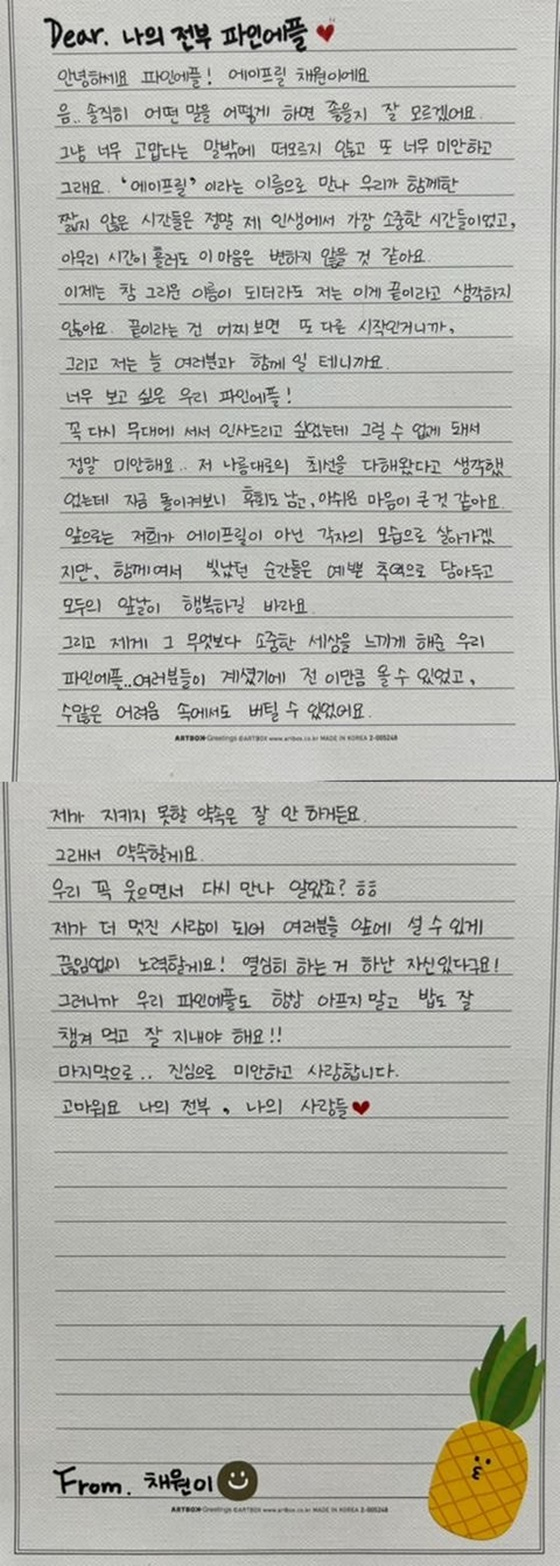 Dear. 나의 전부 파인에플 ♥
안녕하세요 파인에플! 에이프릴 채원이에요
음.. 솔직히 어떤 말을 어떻게 하면 좋을지 잘 모르겠어요.
그냥 너무 고맙다는 말밖에 떠오르지 않고 또 너무 미안하고
그래요. '에이프릴' 이라는 이름으로 만나 우리가 함께한
짧지 않은 시간들은 정말 제 인생에서 가장 소중한 시간들이었고,
아무리 시간이 흘러도 이 마음은 변하지 않을 것 같아요.
이제는 참 그리운 이름이 되더라도 저는 이게 끝이라고 생각하지
않아요. 끝이라는 건 어찌 보면 또 다른 시작인거니까,
그리고 저는 늘 여러분과 함께 일 테니까요.
너무 보고 싶은 우리 파인에플!
꼭 다시 무대에 서서 인사드리고 싶었는데 그럴 수 없게 돼서
정말 미안해요.. 저 나름대로의 최선을 다해왔다고 생각했
었는데 지금 돌이켜보니 후회도 남고, 아쉬운 마음이 큰 것 같아요.
앞으로는 저희가 에이프릴이 아닌 각자의 모습으로 살아가겠
지만, 함께여서 빛났던 순간들은 예쁜 추억으로 담아두고
모두의 앞날이 행복하길 바라요.
그리고 제게 그 무엇보다 소중한 세상을 느끼게 해준 우리
파인에플..여러분들이 계셨기에 전 이만큼 올 수 있었고,
수많은 어려움 속에서도 버틸 수 있었어요.
ARTBOX Greetings ©ARTBOX www.artbox.co.kr MADE IN KOREA 2-005248
제가 지키지 못할 약속은 잘 안 하거든요.
그래서 약속할게요.
우리 꼭 웃으면서 다시 만나 알았죠? ㅎㅎ
제가 더 멋진 사람이 되어 여러분들 앞에 설 수 있게
끊임없이 노력할게요! 열심히 하는 거 하난 자신있다구요!
그러니까 우리 파인에플도 항상 아프지 말고 밥도 잘
챙겨 먹고 잘 지내야 해요!!
마지막으로.. 진심으로 미안하고 사랑합니다.
고마워요 나의 전부, 나의 사랑들♥
From. 채원이
ARTBOX Greetings ©ARTBOX www.artbox.co.kr MADE IN KOREA 2-005248